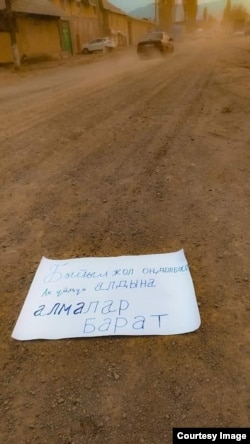 Быйыл жол оңдолбосо
Ак үйдүн алдына
алмалар
барат
Courtesy Image